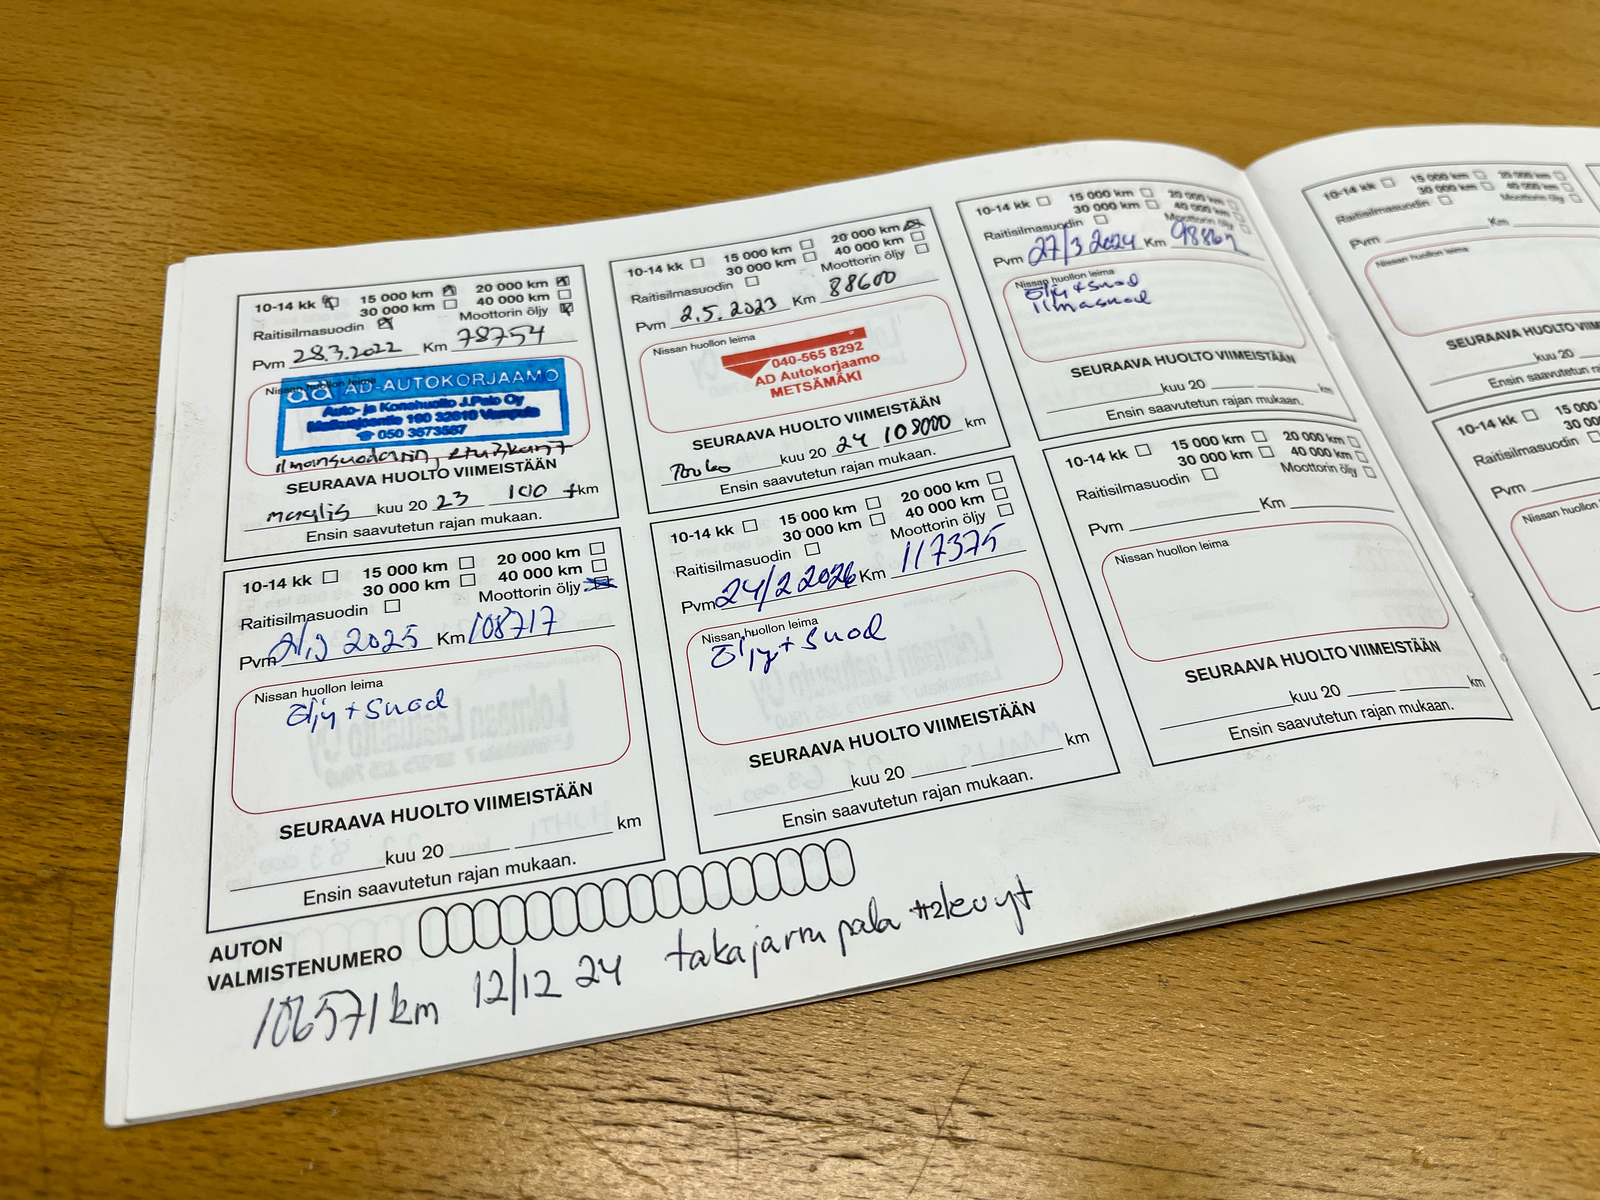 10-14 kk 15 000 km 20 000 km
30 000 km 40 000 km
Raitisilmasuodin Moottorin öljy
Pvm 28.3.2022 Km 78754
Nissan huollon leima
AD-AUTOKORJAAMO
Auto- ja Konehuolto J.Palo Oy
32810 Vampula
050 3673567
ilmansuodatin,
SEURAAVA HUOLTO VIIMEISTÄÄN
maalis kuu 20 23 100 t km
Ensin saavutetun rajan mukaan.
10-14 kk 15 000 km 20 000 km
30 000 km 40 000 km
Raitisilmasuodin Moottorin öljy
Pvm 2.5.2023 Km 88600
Nissan huollon leima
040-565 8292
AD Autokorjaamo
METSÄMÄKI
SEURAAVA HUOLTO VIIMEISTÄÄN
Touko kuu 20 24 108000 km
Ensin saavutetun rajan mukaan.
10-14 kk 15 000 km 20 000 km
30 000 km 40 000 km
Raitisilmasuodin Moottorin öljy
Pvm 27/3 2024 Km
Nissan huollon leima
Öljy + suod
ilmasuod
SEURAAVA HUOLTO VIIMEISTÄÄN
kuu 20 km
Ensin saavutetun rajan mukaan.
10-14 kk 15 000 km 20 000 km
30 000 km 40 000 km
Raitisilmasuodin Moottorin öljy
Pvm 2025 Km 108717
Nissan huollon leima
Öljy + suod
SEURAAVA HUOLTO VIIMEISTÄÄN
kuu 20 km
Ensin saavutetun rajan mukaan.
10-14 kk 15 000 km 20 000 km
30 000 km 40 000 km
Raitisilmasuodin Moottorin öljy
Pvm 24/2 2026 Km 117375
Nissan huollon leima
Öljy + suod
SEURAAVA HUOLTO VIIMEISTÄÄN
kuu 20 km
Ensin saavutetun rajan mukaan.
10-14 kk 15 000 km 20 000 km
30 000 km 40 000 km
Raitisilmasuodin Moottorin öljy
Pvm Km
Nissan huollon leima
SEURAAVA HUOLTO VIIMEISTÄÄN
kuu 20 km
Ensin saavutetun rajan mukaan.
AUTON
VALMISTENUMERO
106571 km 12/12 24 takajarru pala
10-14 kk 15 000 km 20 000 km
30 000 km 40 000 km
Raitisilmasuodin Moottorin öljy
Pvm Km
Nissan huollon leima
SEURAAVA HUOLTO
kuu 20
Ensin saavutetun
10-14 kk 15 000
30 00
Raitisilmasuodin
Pvm
Nissan huollon
SEURA
Ens